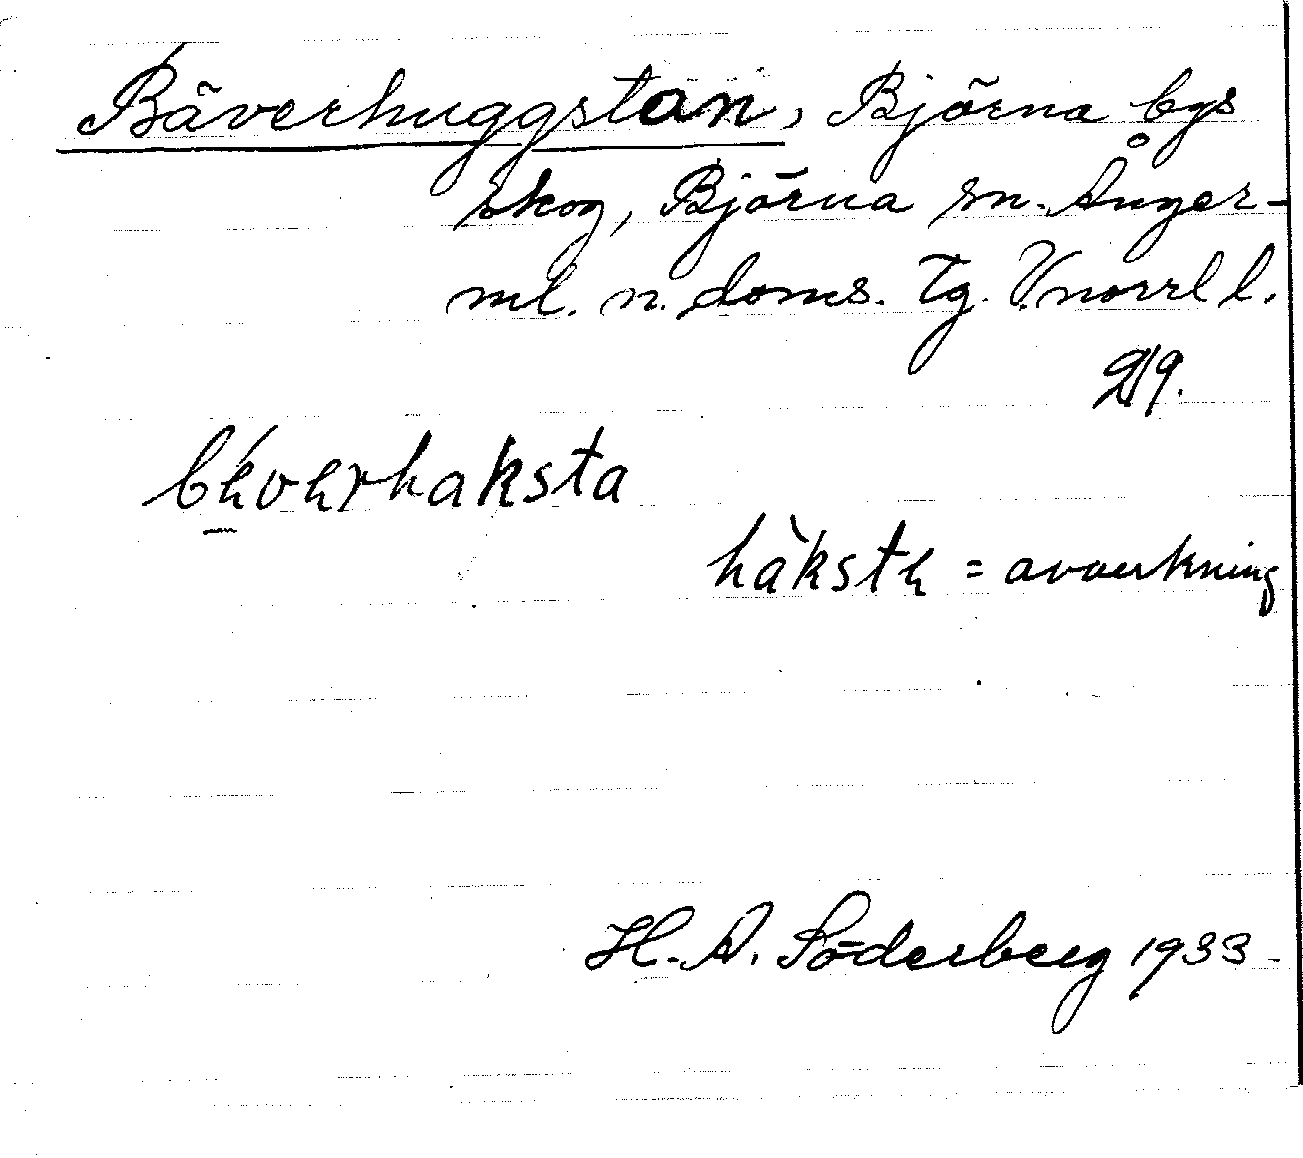 Bäverhuggstan, Björna bys
skog, Björna sn. Ånger-
ml. n. doms. tg. V.norrl l.
219.
haksta
hàksth = avverkning
H. A. Söderberg 1933